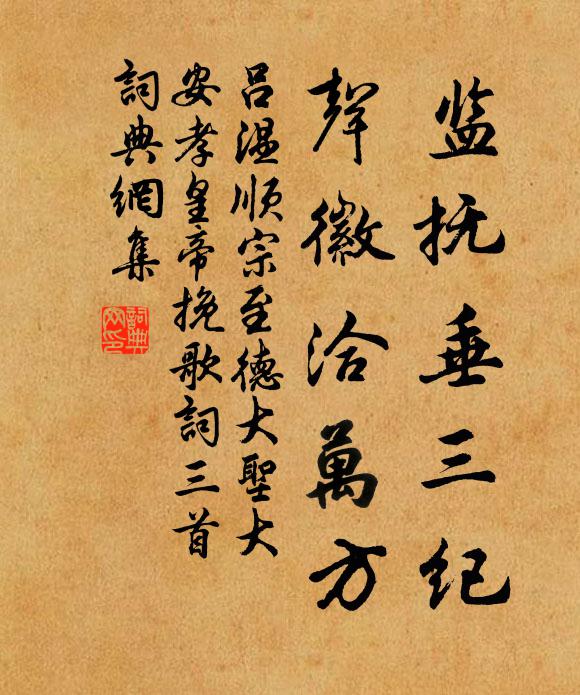 监抚垂三纪
聲徽洽萬方
吕温順宗至德大聖大
安孝皇帝挽歌詞三首
詞典網集
詞典
网印